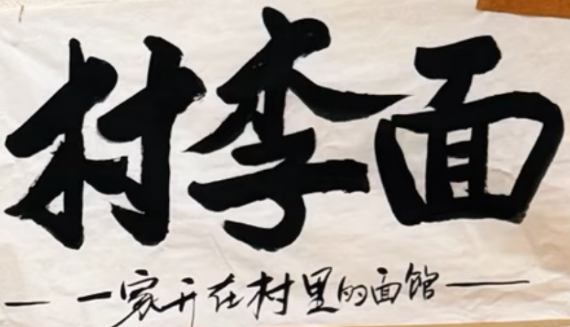 村李面
一家开在村里的面馆